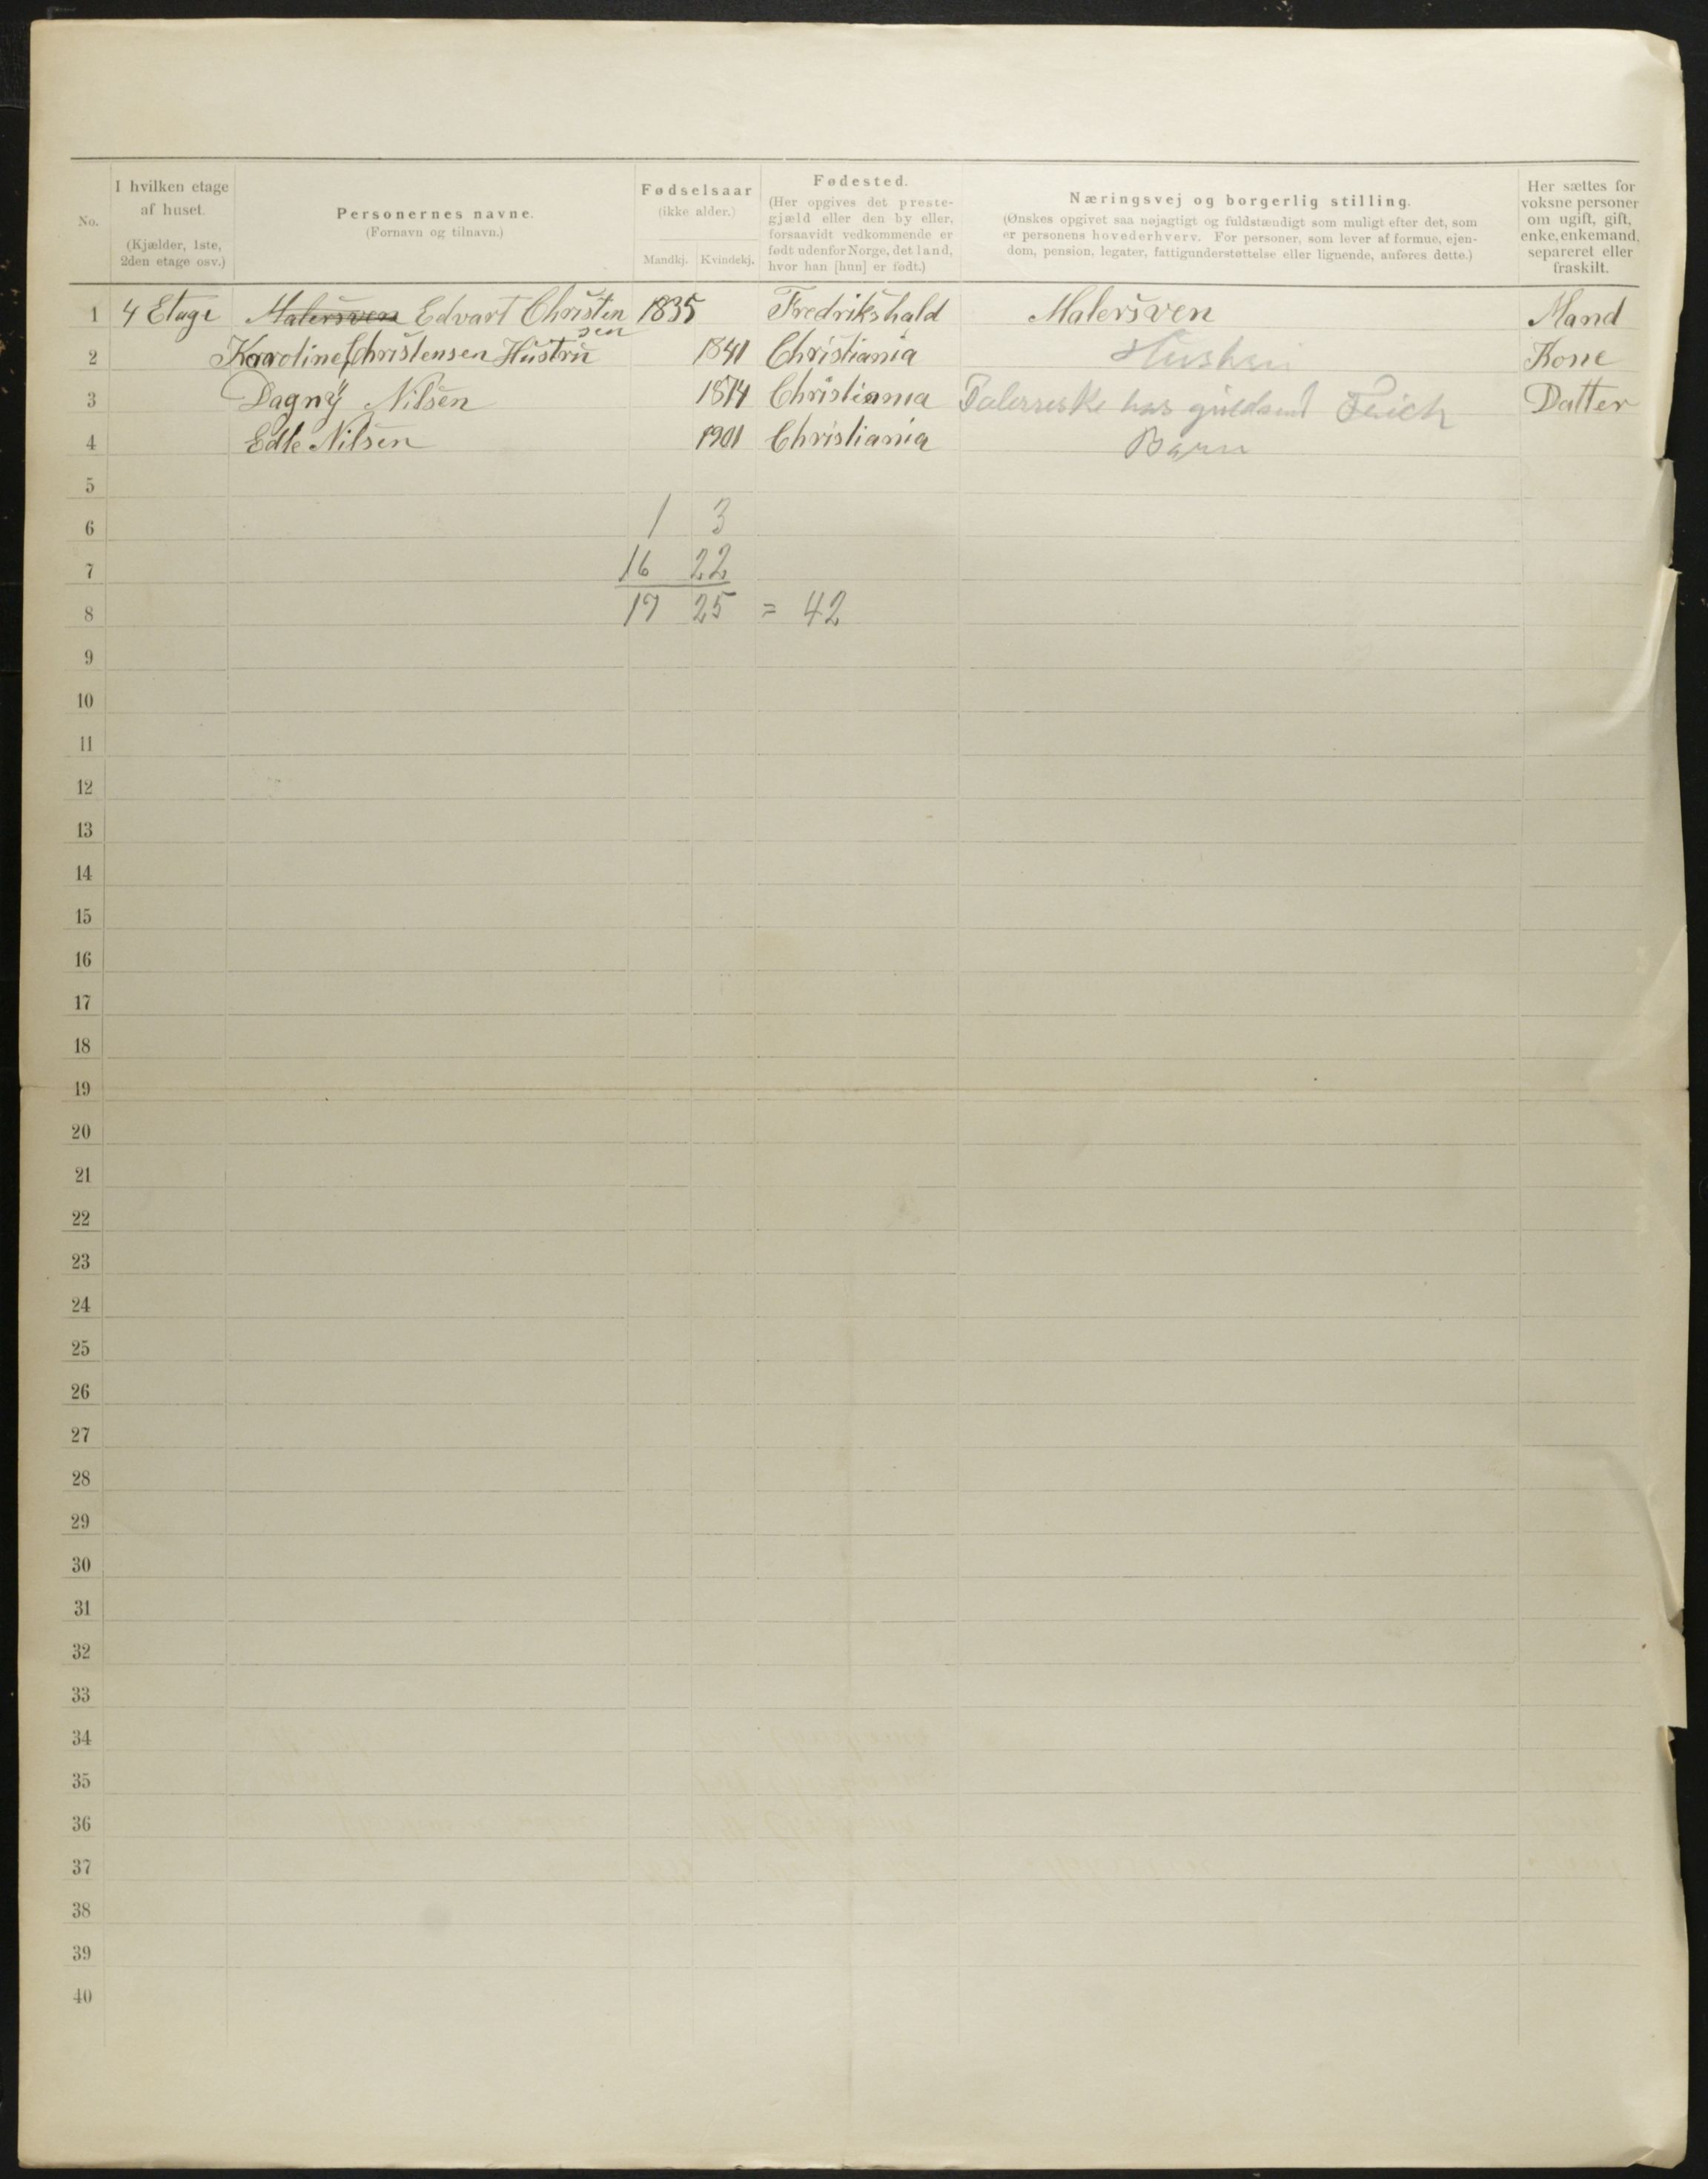 No.
I hvilken etage
af huset.
(Kjælder, 1ste,
2den etage osv.)
Personernes navne.
(Fornavn og tilnavn.)
Fødselsaar
(ikke alder.)
Mandkj. Kvindekj.
Fødested.
(Her opgives det preste-
gjæld eller den by eller,
forsaavidt vedkommende er
født udenfor Norge, det land,
hvor han [hun] er født.)
Næringsvej og borgerlig stilling.
(Ønskes opgivet saa nøjagtigt og fuldstændigt som muligt efter det, som
er personens hovederhverv. For personer, som lever af formue, ejen-
dom, pension, legater, fattigunderstøttelse eller lignende, anføres dette.)
Her sættes for
voksne personer
om ugift, gift,
enke, enkemand,
separeret eller
fraskilt.
1 4 Etage Malersven Edvart Christen 1835 Fredrikshald Malersven Mand
sen
2 Karoline Christensen Hustru 1841 Christiania Kone
3 Dagny Nilsen 1874 Christiania has Datter
4 Edle Nilsen 1901 Christiania Barn
5
6 1 3
7 16 22
8 17 25 = 42
9
10
11
12
13
14
15
16
17
18
19
20
21
22
23
24
25
26
27
28
29
30
31
32
33
34
35
36
37
38
39
40